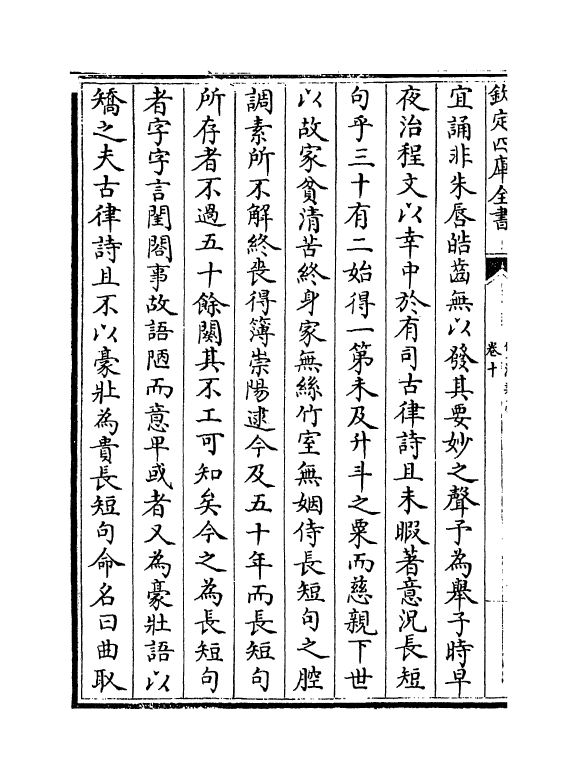 欽定四庫全書
卷十
宜誦非朱唇皓齒無以發其要妙之聲予為舉子時早
夜治程文以幸中於有司古律詩且未暇著意況長短
句乎三十有二始得一第未及升斗之粟而慈親下世
以故家貧清苦終身家無絲竹室無姻侍長短句之腔
調素所不解終喪得簿崇陽逮今及五十年而長短句
所存者不過五十餘闋其不工可知矣今之為長短句
者字字言閨閤事故語陋而意卑或者又為豪壯語以
矯之夫古律詩且不以豪壯為貴長短句命名曰曲取